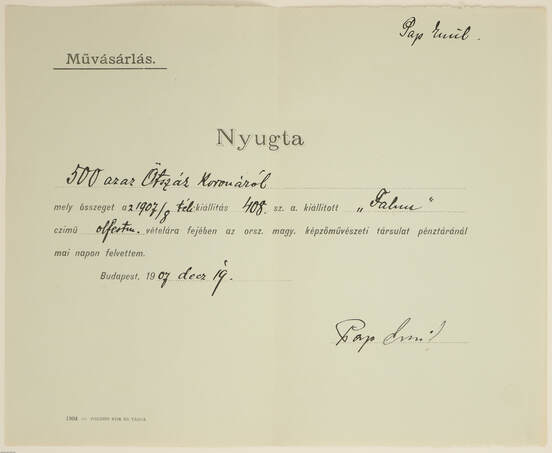 Pap Emil.
Művásárlás.
Nyugta
500 azaz Ötszáz koronáról
mely összeget a z 1907/8 téli kiállitás 408. sz. a. kiállított „Falu"
czimű olfestm. vételára fejében az orsz. magy. képzőművészeti társulat pénztáránál
mai napon felvettem.
Budapest, 1907 decz 19.
Pap Emil
1904 —